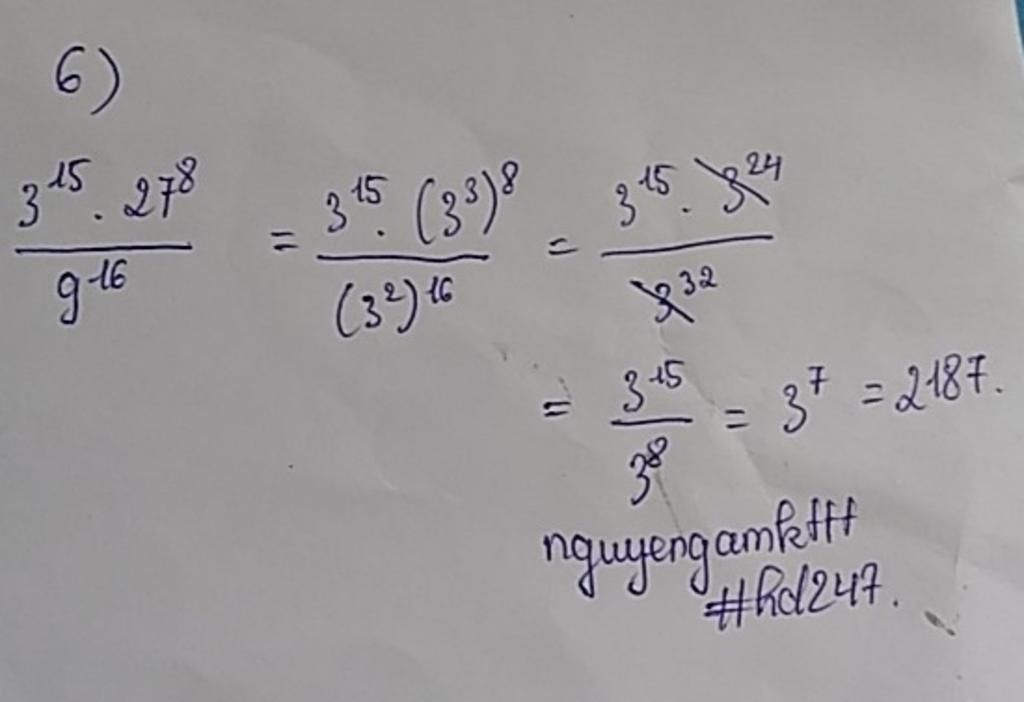 6)
3^15 . 27^8 / 9^16 = 3^15 . (3^3)^8 / (3^2)^16 = 3^15 . 3^24 / 3^32
= 3^15 / 3^8 = 3^7 = 2187.
nguyengamkttt
#hd247.